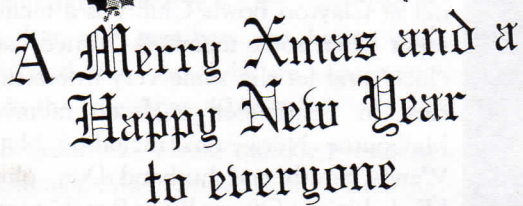 A Merry Xmas and a
Happy New Year
to everyone